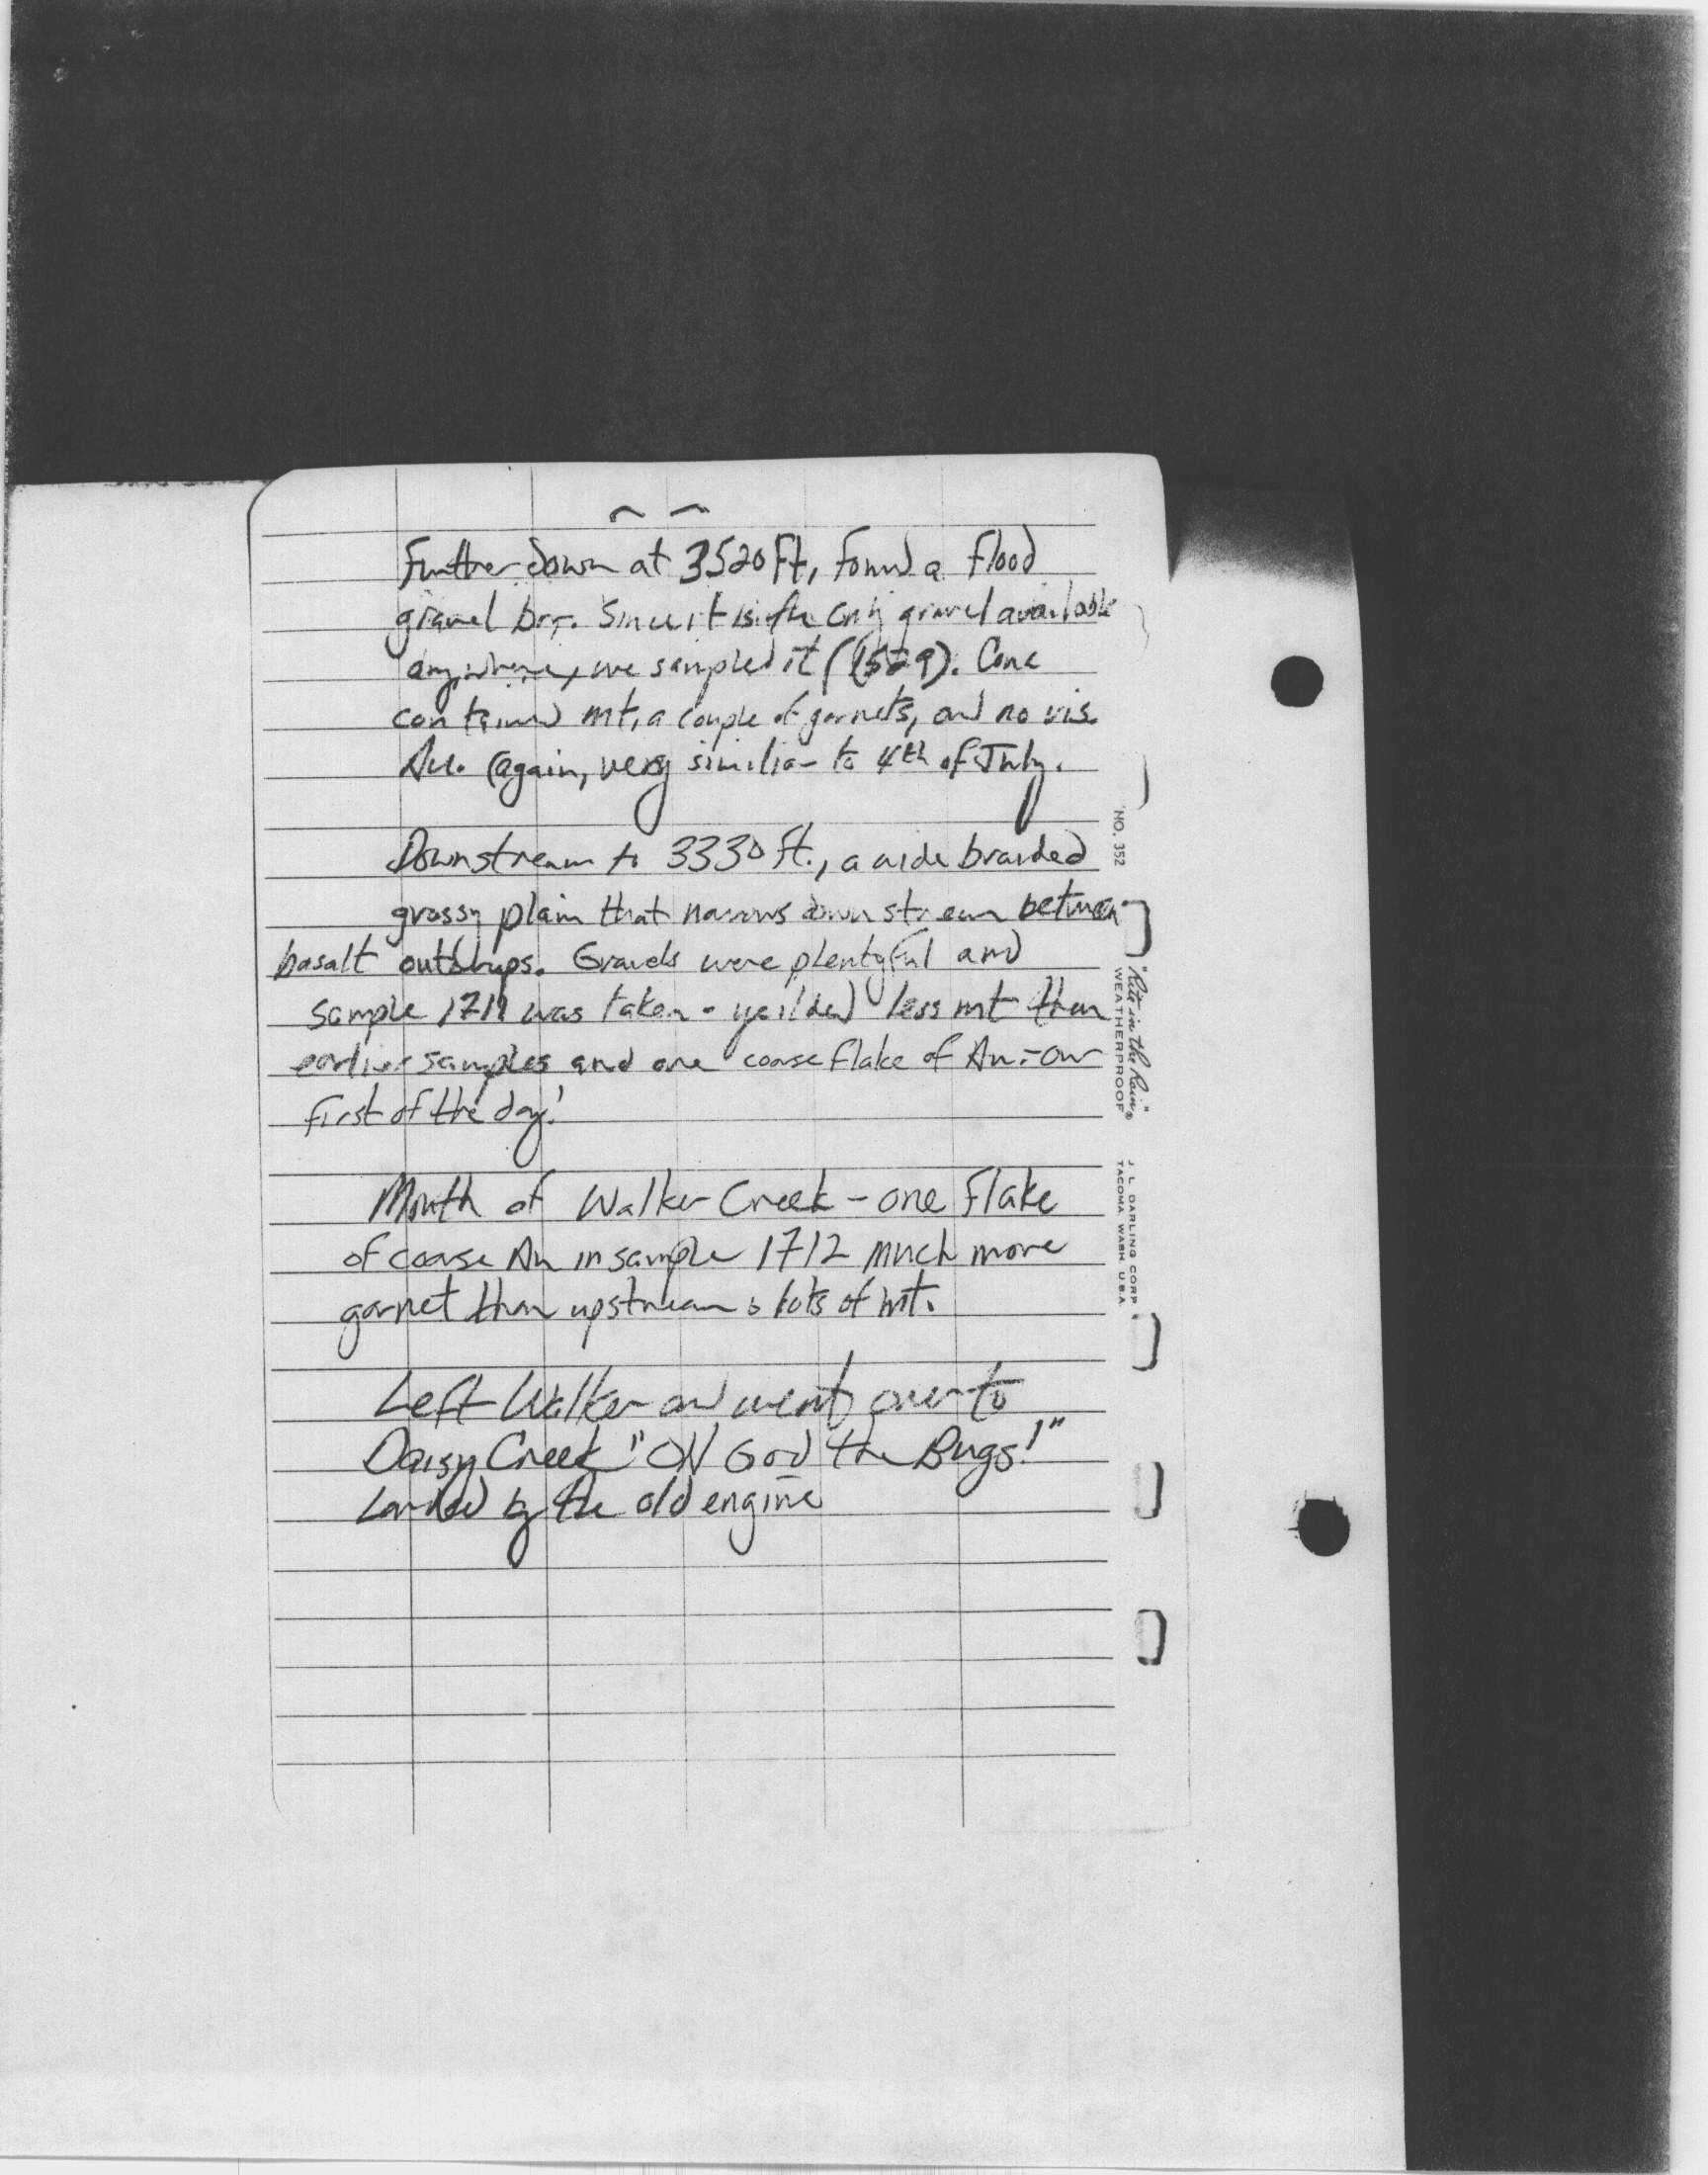 Further down at 3520 ft, found a flood
gravel bar. Since it is the only gravel available
anywhere, we sampled it (1529). Conc
contained mt, a couple of garnets, and no vis.
Au. (again, very similiar to 4th of July.
Downstream to 3330 ft., a wide braided
grassy plain that narrows down stream between
basalt outcrups. Gravels were plentyful and
sample 1711 was taken - yeilded less mt than
earlier samples and one coarse flake of Au - our
first of the day!
Mouth of Walker Creek - one flake
of coarse Au in sample 1712 much more
garnet than upstream & lots of mt.
Left Walker and went over to
Daisy Creek "Oh God the Bugs!"
Landed by the old engine
NO. 352
"Rite in the Rain"®
WEATHERPROOF
J. L. DARLING CORP.
TACOMA WASH U.S.A.